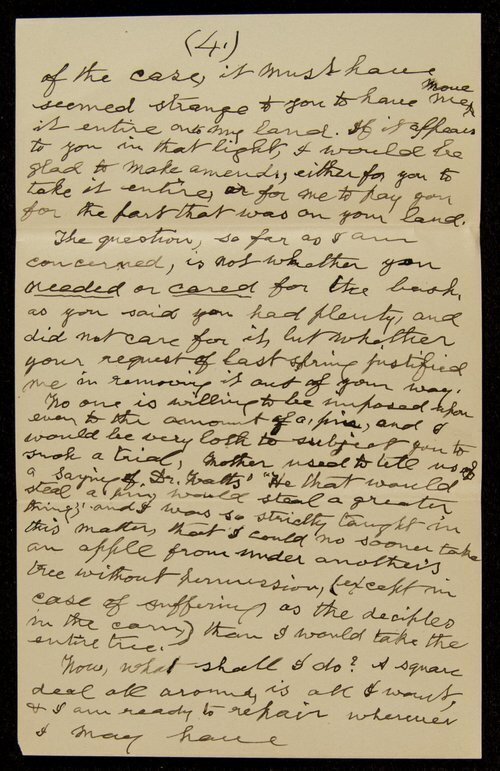 (4.)
of the case, it must have
seemed strange to you to have me move
it entire onto my land. If it appears
to you in that light, I would be
glad to make amends, either for you to
take it entire, or for me to pay you
for the part that was on your land.
The question, so far as I am
concerned, is not whether you
needed or cared for the bush,
as you said you had plenty, and
did not care for it, but whether
your request of last spring justified
me in removing it out of your way.
No one is willing to be imposed upon
even to the amount of a pin, and I
would be very loth to subject you to
such a trial, Mother used to tell us
a saying of Dr. Watts' "He that would
steal a pin, would steal a greater
thing," and I was so strictly taught in
this matter, that I could no sooner take
an apple from under another's
tree without permission, (except in
case of suffering, as the deciples
in the corn,) than I would take the
entire tree.
Now, what shall I do? A square
deal all around, is all I want,
& I am ready to repair wherever
I may have